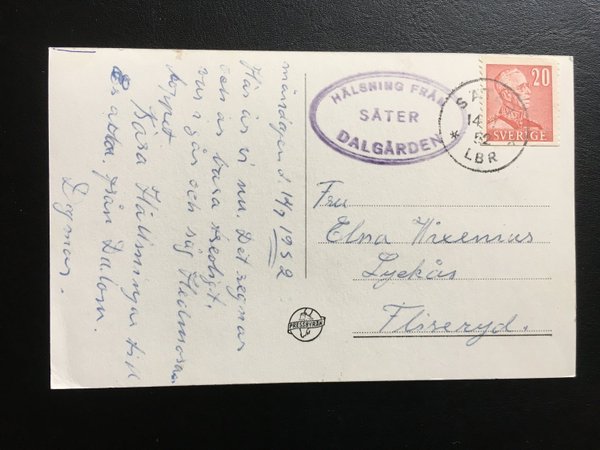 måndagen d. 14/7 1952
Här är vi nu. Det regnar
och är bara
var i går och såg Hedmora
hoppet
Kära Hälsningar till
Er alla, från Dalom.
Dymar.
HÄLSNING FRÅN
SÄTER
DALGÅRDEN
SÄT
14
52
LBR
20
SVERIGE
Fru
Elna Wixenius
Lyckås
Fliseryd.
PRESSBYRÅN